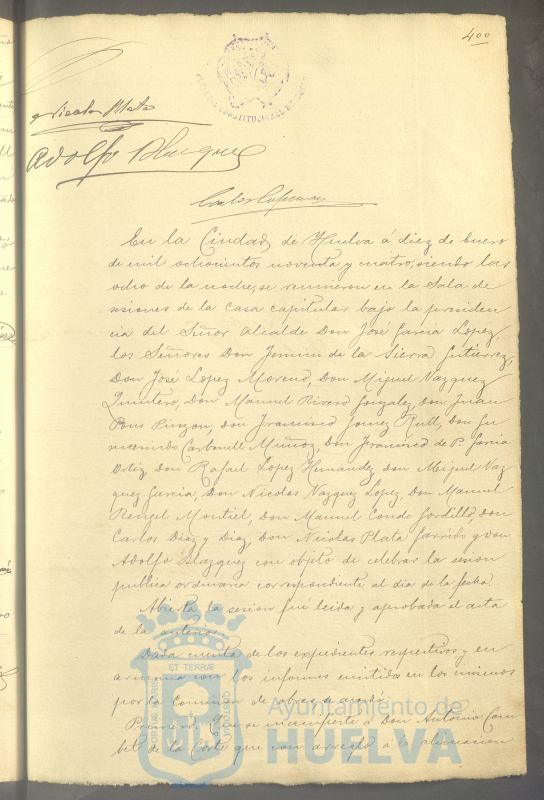 400
ALCALDIA CONSTITUCIONAL DE
Nicolas Plata
Adolfo Blazquez
En la Ciudad de Huelva á diez de Enero
de mil ochocientos noventa y cuatro, siendo las
ocho de la noche, se reunieron en la Sala de
sesiones de la casa capitular bajo la presiden
cia del Señor Alcalde Don José Garcia Lopez,
los Señores Don Jemim de la Sierra Gutierrez,
Don José Lopez Moreno, Don Miguel Vazquez
Quintero, Don Manuel Rivero Gonzalez, don Juan
Pons Pinzon, don Francisco Gomez Rull, Don Gu
mersindo Carbonell Muñoz, Don Francisco de P. Garcia
Ortiz, don Rafael Lopez Hernandez, don Miguel Vaz
quez Garcia, Don Nicolas Vazquez Lopez, Don Manuel
Rengel Montiel, Don Manuel Conde Gordillo, don
Carlos Diaz y Diaz, Don Nicolas Plata Garrido y don
Adolfo Blazquez con objeto de celebrar la sesion
publica ordinaria correspondiente al dia de la fecha.
Abierta la sesion fué leida y aprobada el acta
de la anterior.
Dada cuenta de los expedientes respectivos y en
armonia con los informes emitidos en los mismos
por la Comision de obras se acordó:
Primero. Que se manifieste á Don Antonio
de la Corte que con arreglo a la alineacion
PORTUS MARIS
ET TERRÆ
CUSTODIA
Ayuntamiento de
HUELVA